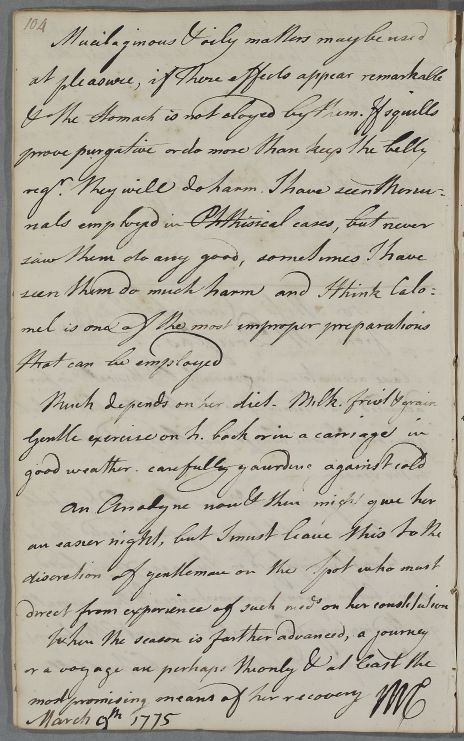 104
Mucilaginous & oily matters may be used
at pleasure, if there effects appear remarkable
& the stomach is not cloyed by them. If squills
prove purgative or do more than keep the belly
regr. they will do harm. I have seen Mercu-
rials employed in Phthisical cases, but never
saw them do any good, sometimes I have
seen them do much harm and I think Calo=
mel is one of the most improper preparations
that can be employed
Much depends on her diet. Milk. fruit & grain
Gentle exercise on h. back or in a carriage in
good weather. carefully guarding against cold
an Anodyne now & then might give her
an easier night, but I must leave this to the
discretion of gentleman on the spot who must
direct from experience of such meds on her constitution
When the season is farther advanced, a journey
or a voyage are perhaps the only & at least the
most promising means of her recovery
March 9th 1775